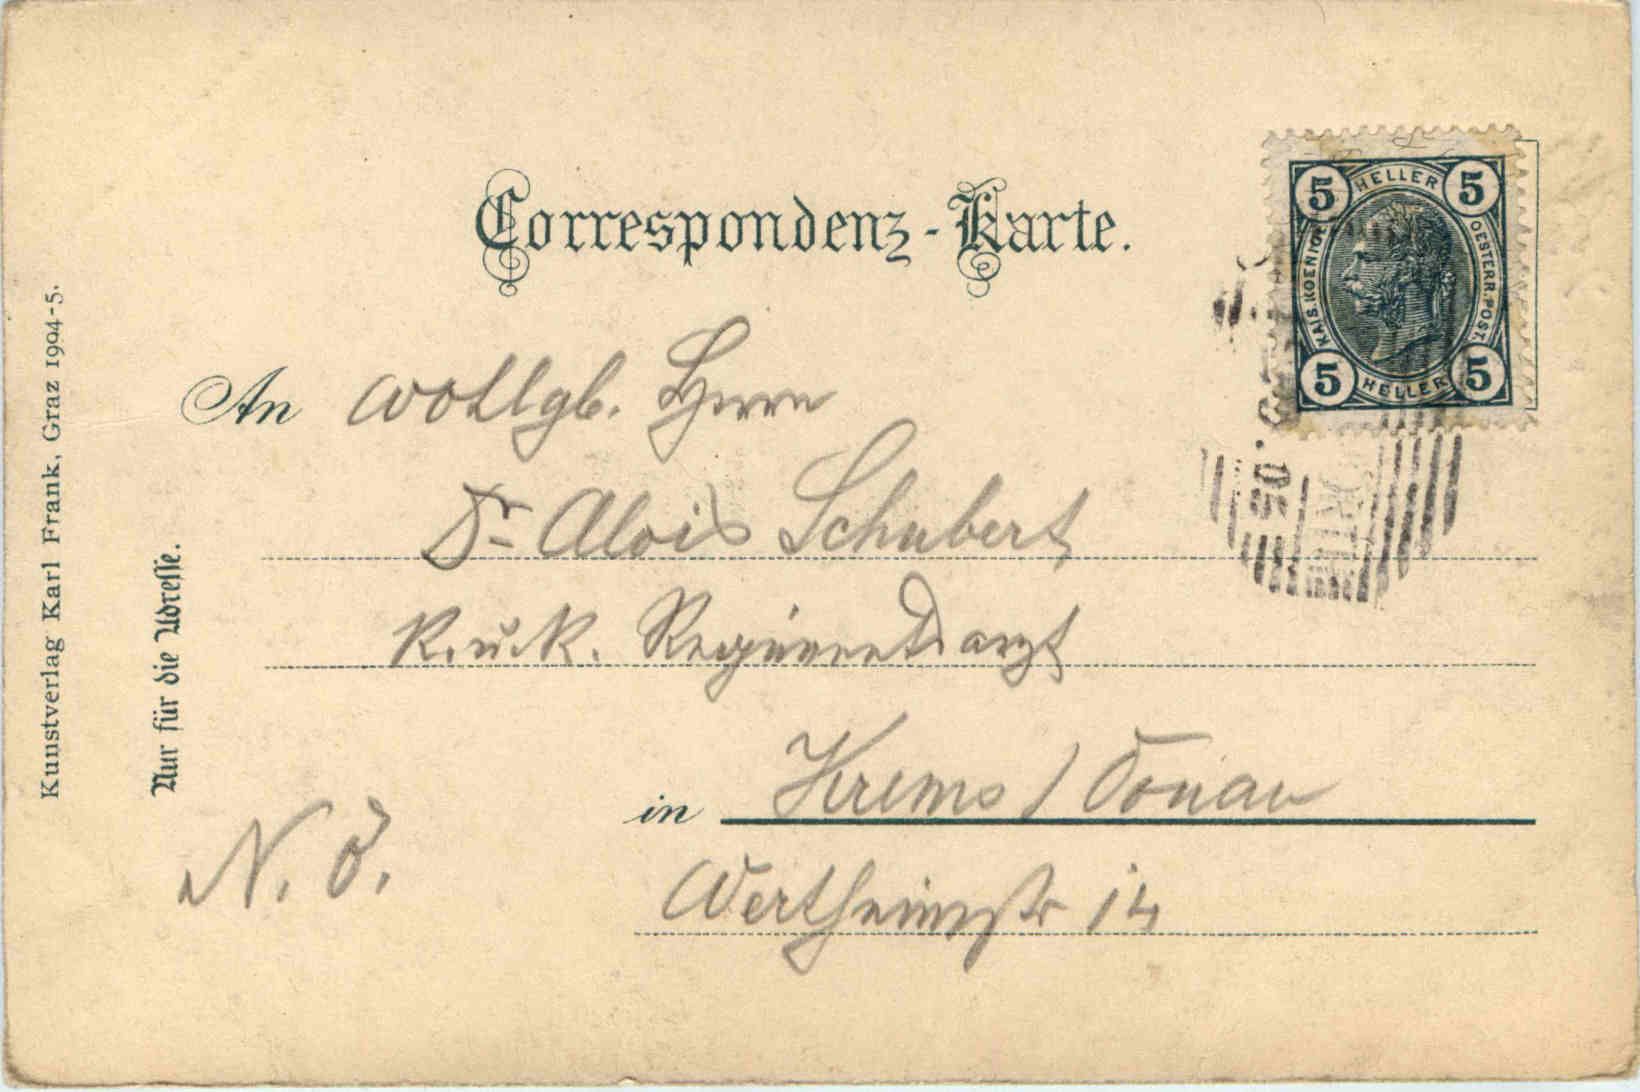 Correspondenz-Karte.
5 HELLER 5
KAIS. KOENIGL.
OESTERR. POST.
5 HELLER 5
An Wohlgb. Herrn
Dr Alois Schubert
K. u. K. Regimentsarzt
in Krems / Donau
Wertheimstr 14
N. Ö.
Nur für die Adresse.
Kunstverlag Karl Frank, Graz 1904-5.